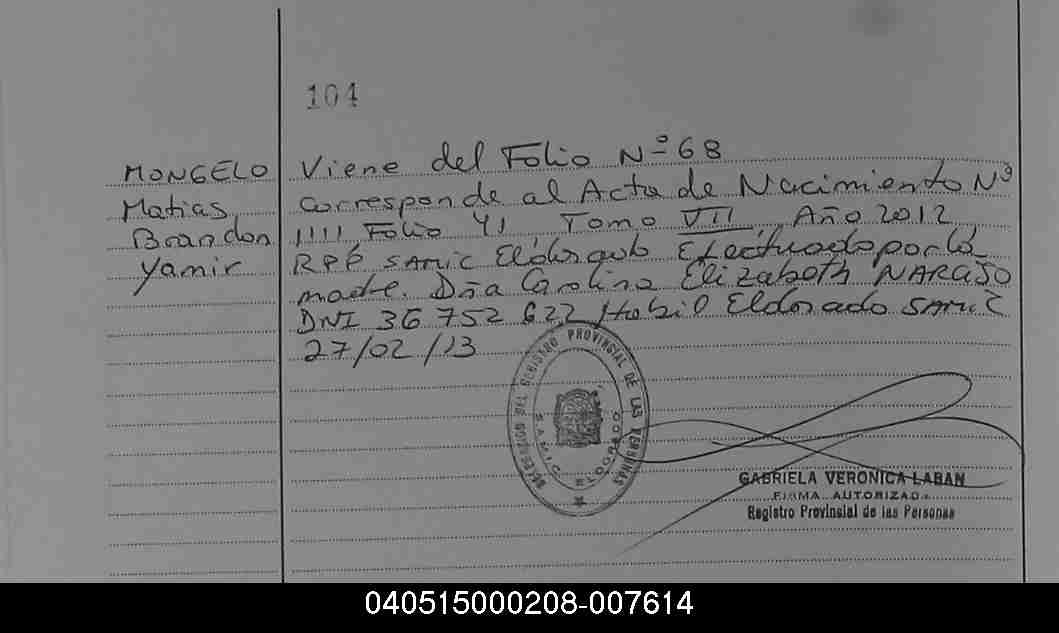 104
MONGELO
Matias
Brandon
Yamir
Viene del Folio Nº 68
corresponde al Acta de Nacimiento Nº
1111 Folio 41 Tomo VII Año 2012
RPP SAMIC Eldorado Efectuado por la
madre. Dña Carolina Elizabeth NARCISO
DNI 36 752 622 Eldorado SAMIC
27/02/13
DELEGACION DEL REGISTRO PROVINCIAL DE LAS PERSONAS
SAMIC ELDORADO
GABRIELA VERONICA LABAN
FIRMA AUTORIZADA
Registro Provincial de las Personas
040515000208-007614